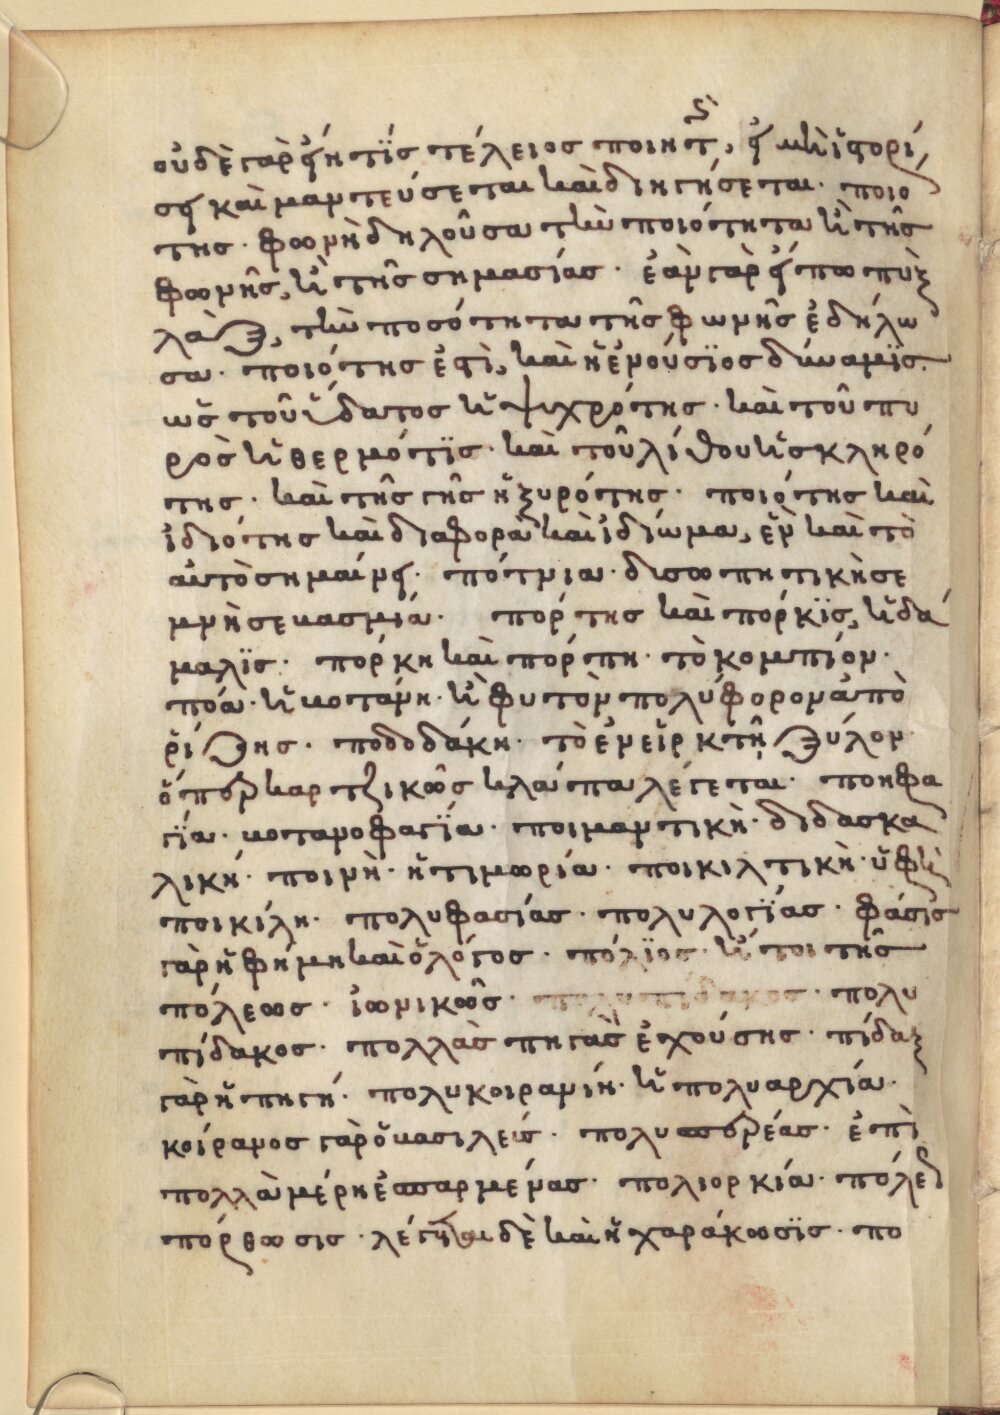 οὐδὲ γὰρ εἴη τΐς τέλειος ποιητὴς, εἰ μὴ ἱστορί
σει καὶ μαντεύσεται καὶ διηγήσεται · ποιό
της · φωνὴ δηλοῦσα τὴν ποιότητα ἢ τῆς
φωνῆς, ἢ τῆς σημασίας · ἐὰν γὰρ εἴπω πὺξ
λὰξ, τὴν ποσότητα τῆς φωνῆς ἐδήλω
σα · ποιότης ἐστὶ, καὶ ἡ ἐνούσϊος δύναμϊς ·
ὡς τοῦ ὕδατος ἡ ψιχρότης · καὶ τοῦ πυ
ρὸς ἡ θερμότϊς · καὶ τοῦ λίθου ἡ σκληρό
της · καὶ τῆς γῆς ἡ ξυρότης · ποιότης καὶ
ἰδιότης καὶ διαφορὰ καὶ ἰδίωμα, ἓν καὶ τὸ
αὐτὸ σημαίνει · πότνια · δισωπητικὴ σε
μνὴ σεβασμιά · πόρτης καὶ πόρκϊς, ἡ δά
μαλϊς · πόρκη καὶ πόρπη · τὸ κομπίον ·
πόα · ἡ βοτάνη · ἢ φυτὸν πολύφορον ἀπὸ
ῥίζης · ποδοδάκη · τὸ ἐν εἱρκτῇ ξύλον
ὅπερ βαρτζικῶς κλάπα λέγεται · ποηφα
γΐα · βοτανοφαγΐα · ποιμαντικὴ · διδασκα
λική · ποινὴ · ἡ τιμωρία · ποικιλτικὴ · ὑφὴ
ποικίλη · πολυφασίας · πολυλογΐας · φάσϊς
γὰρ ἡ φήμη καὶ ὁ λόγος · πόλϊος · ἤτοι τῆς
πόλεως · ἰωνικῶς · πολυπίδακος · πολυ
πίδακος · πολλὰς πηγὰς ἐχούσης · πίδαξ
γὰρ ἡ πηγή · πολυκοιρανίη · ἡ πολυαρχία ·
κοίρανος γὰρ ὁ βασιλεύς · πολυσπερέας · ἐπὶ
πολλὰ μέρη ἐσπαρμένας · πολιορκία · πόλεως
πόρθωσις · λέγεται δὲ καὶ ἡ χαράκωσϊς · πο